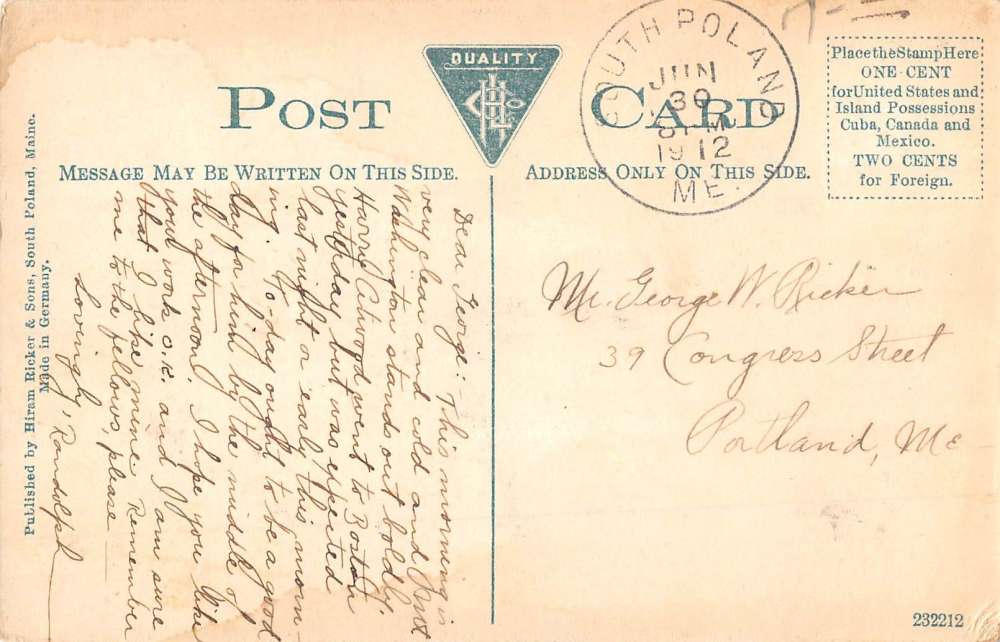 QUALITY
POST CARD
MESSAGE MAY BE WRITTEN ON THIS SIDE.
ADDRESS ONLY ON THIS SIDE.
SOUTH POLAND
JUN
30
M
1912
ME.
Place the Stamp Here
ONE CENT
for United States and
Island Possessions
Cuba, Canada and
Mexico.
TWO CENTS
for Foreign.
Dear George: This morning is
very clear and cold and Mt
Washington stands out boldly.
Harry went to Boston
yesterday but was expected
last night or early this morn-
ing. To-day ought to be a good
day for him by the middle of
the afternoon. I hope you like
your work o.k. and I am sure
that I like mine. Remember
me to the fellows, please
Lovingly, Randolph
Mr. George W. Ricker
39 Congress Street
Portland, Me
Published by Hiram Ricker & Sons, South Poland, Maine.
Made in Germany.
232212